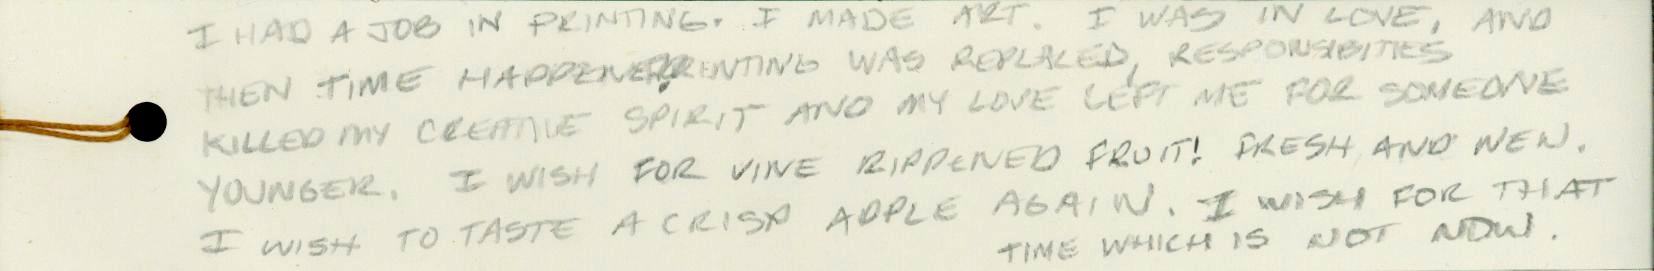 I HAD A JOB IN PRINTING. I MADE ART. I WAS IN LOVE, AND
THEN TIME HAPPENED. PRINTING WAS REPLACED, RESPONSIBITIES
KILLED MY CREATIVE SPIRIT AND MY LOVE LEFT ME FOR SOMEONE
YOUNGER. I WISH FOR VINE RIPPENED FRUIT! FRESH AND NEW.
I WISH TO TASTE A CRISP APPLE AGAIN. I WISH FOR THAT
TIME WHICH IS NOT NOW.